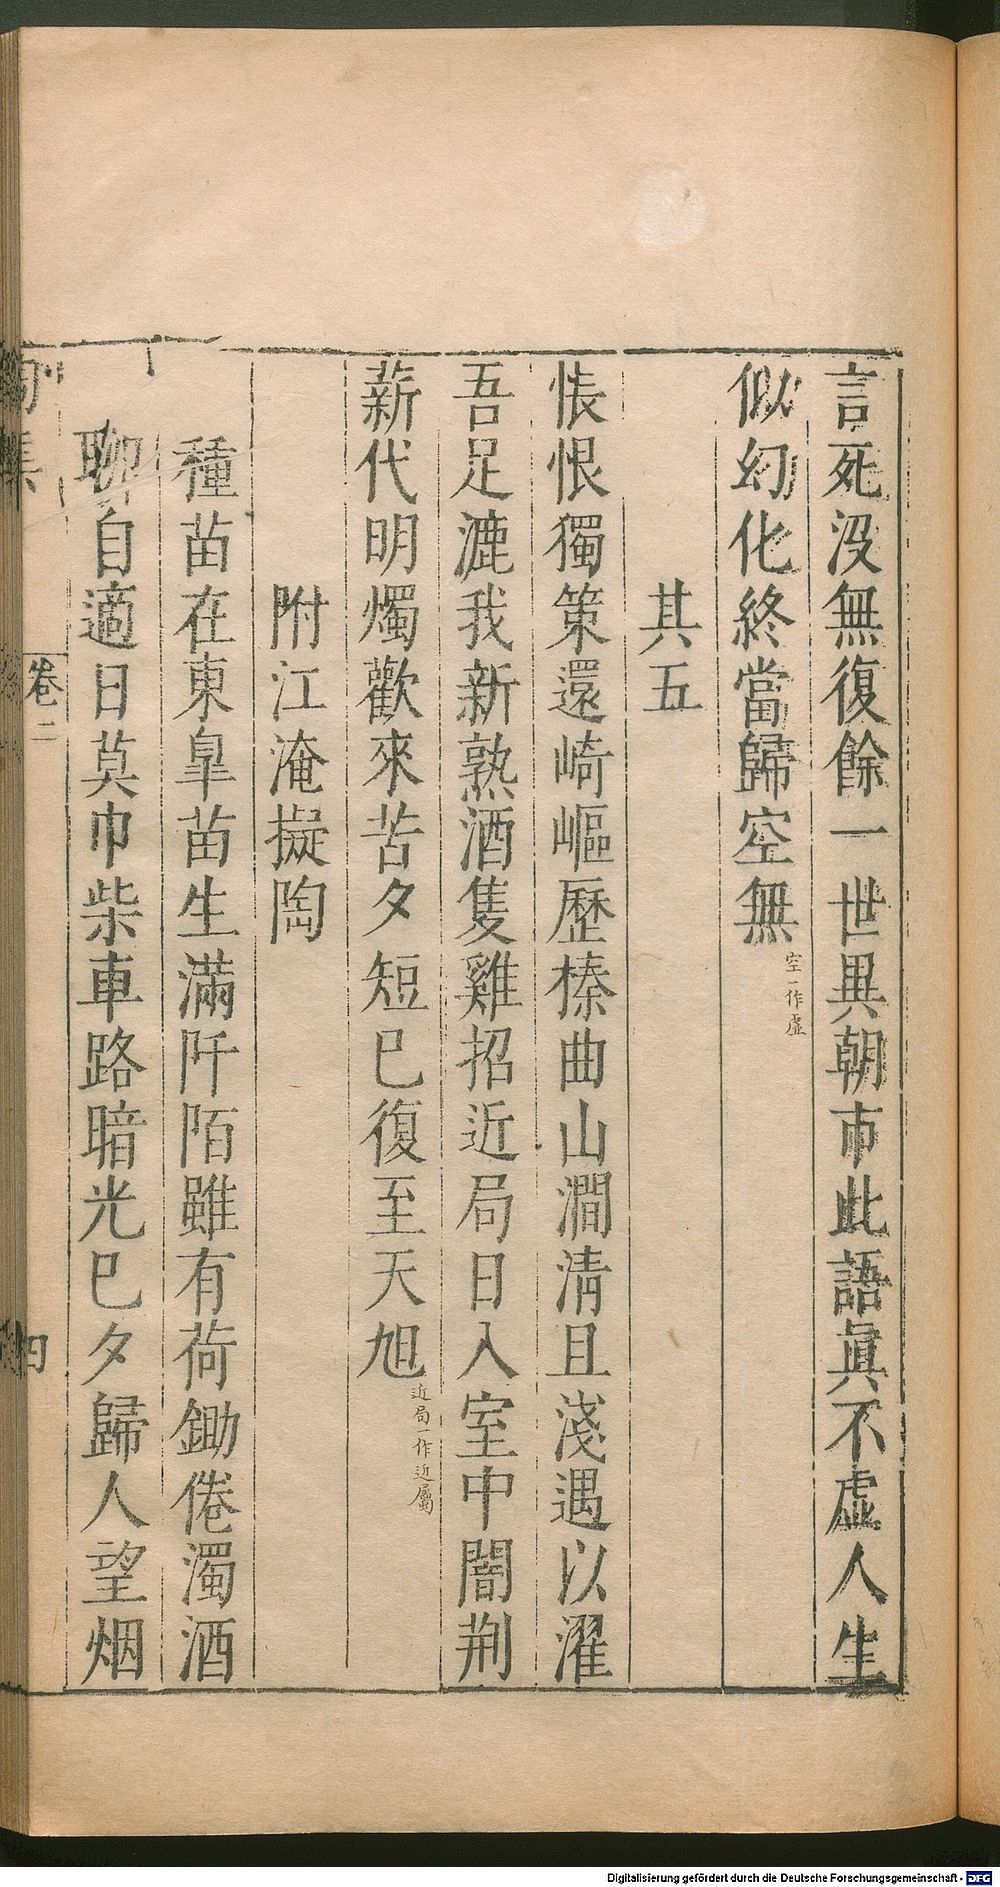 言死没無復餘一世異朝市此語眞不虛人生
似幻化終當歸空無空一作虛
其五
悵恨獨策還崎嶇歷榛曲山澗淸且淺遇以濯
吾足漉我新熟酒隻雞招近局日入室中闇荆
薪代明燭歡來苦夕短已復至天旭近局一作近屬
附江淹擬陶
種苗在東皐苗生滿阡陌雖有荷鋤倦濁酒
聊自適日莫巾柴車路暗光已夕歸人望烟
卷二
四
Digitalisierung gefördert durch die Deutsche Forschungsgemeinschaft - DFG